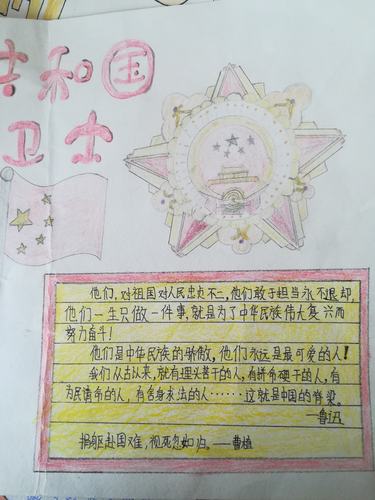 共和国
卫士
他们，对祖国对人民忠贞不二，他们敢于担当永不退却，
他们一生只做一件事，就是为了中华民族伟大复兴而
努力奋斗！
他们是中华民族的骄傲，他们永远是最可爱的人！
我们从古以来，就有埋头苦干的人，有拼命硬干的人，有
为民请命的人，有舍身求法的人……这就是中国的脊梁。
—鲁迅
捐躯赴国难，视死忽如归。——曹植